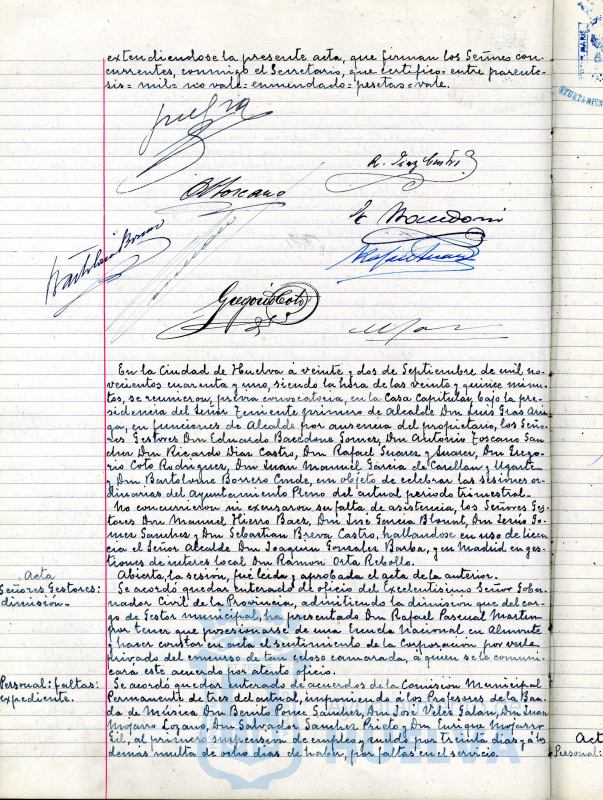 extendiendose la presente acta, que firman los Señores con-
currentes, conmigo el Secretario, que certifico= entre parente-
sis= mil= no vale= enmendado= pesetas= vale.
R. Diaz Castro
A Toscano
E Bacedoni
Bartolomé Borrero
Rafael Suarez
Gregorio Coto
En la Ciudad de Huelva á veinte y dos de Septiembre de mil no-
vecientos cuarenta y uno, siendo la hora de las veinte y quince minu-
tos, se reunieron, previa convocatoria, en la Casa Capitular, bajo la pre-
sidencia del Señor Teniente primero de Alcalde Dn Luis Gras Arin-
ga, en funciones de Alcalde por ausencia del propietario, los Seño-
res Gestores Dn Eduardo Bacedone Gomez, Dn Antonio Toscano San-
chez Dn Ricardo Diaz Castro, Dn Rafael Suarez y Suarez, Dn Grego-
rio Coto Rodriguez, Dn Juan Manuel Garcia de Casellan y Ugarte
y Dn Bartolome Borrero Conde, en objeto de celebrar las sesiones or-
dinarias del Ayuntamiento Pleno del actual periodo trimestral.
No concurrieron ni excusaron su falta de asistencia, los Señores Ges-
tores Dn Manuel Hierro Baez, Dn José Garcia Blount, Dn Jesus Go-
mez Sanchez y Dn Sebastian Breva Castro, hallandose en uso de licen-
cia el Señor Alcalde Dn Joaquin Gonzalez Barba, y en Madrid en ges-
tiones de interes local Dn Ramon Orta Rebollo.
Acta
Abierta la sesion, fué leida y aprobada el acta de la anterior.
Señores Gestores:
dimision.
Se acordó quedar enterado de oficio del Excelentisimo Señor Gober-
nador Civil de la Provincia, admitiendo la dimision que del car-
go de Gestor municipal ha presentado Dn Rafael Pascual Martin
por tener que posesionarse de una Escuela Nacional en Almonte
y hacer constar en acta el sentimiento de la Corporacion por verse
privado del concurso de tan celoso camarada, a quien se le comuni-
cará este acuerdo por atento oficio.
Personal: faltas:
expediente.
Se acordó quedar enterado de acuerdos de la Comision Municipal
Permanente de tres del actual, imponiendo á los Profesores de la Ban-
da de Música Dn Benito Ponce Sanchez, Dn José Velez Galan, Dn Juan
Mojarro Lozano, Dn Salvador Sanchez Prieto y Dn Enrique Mojarro
Gil, al primero suspension de empleo y sueldo por treinta dias y á los
demás multa de ocho dias de haber, por faltas en el servicio.
HUELVA
Act
Personal: